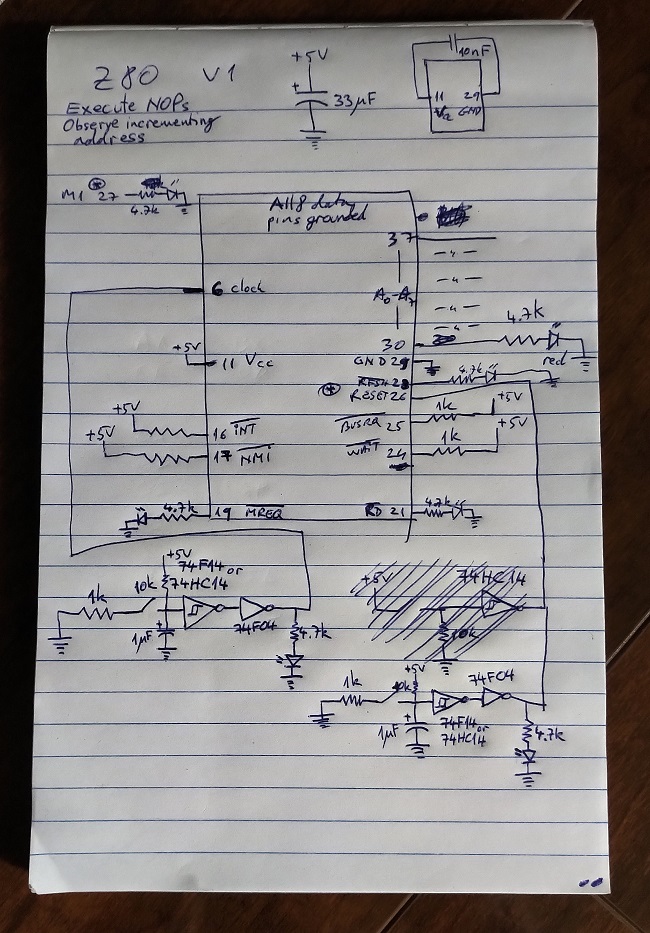 Z80 V1
Execute NOPs
Observe incrementing
address
+5V
+
33µF
10nF
11 29
Vcc GND
M1 * 27
4.7k
All 8 data
pins grounded
37
6 clock
A0-A7
30
4.7k
red
+5V
11 Vcc
GND 29
RFSH 28
4.7k
* RESET 26
+5V
+5V
16 INT
17 NMI
BUSRQ 25
1k
+5V
WAIT 24
1k
+5V
4.7k
19 MREQ
RD 21
4.7k
+5V
74F14 or
74HC14
10k
1k
1µF
+
74F04
4.7k
+5V
74HC14
10k
+5V
1k
10k
74F04
1µF
+
74F14 or
74HC14
4.7k